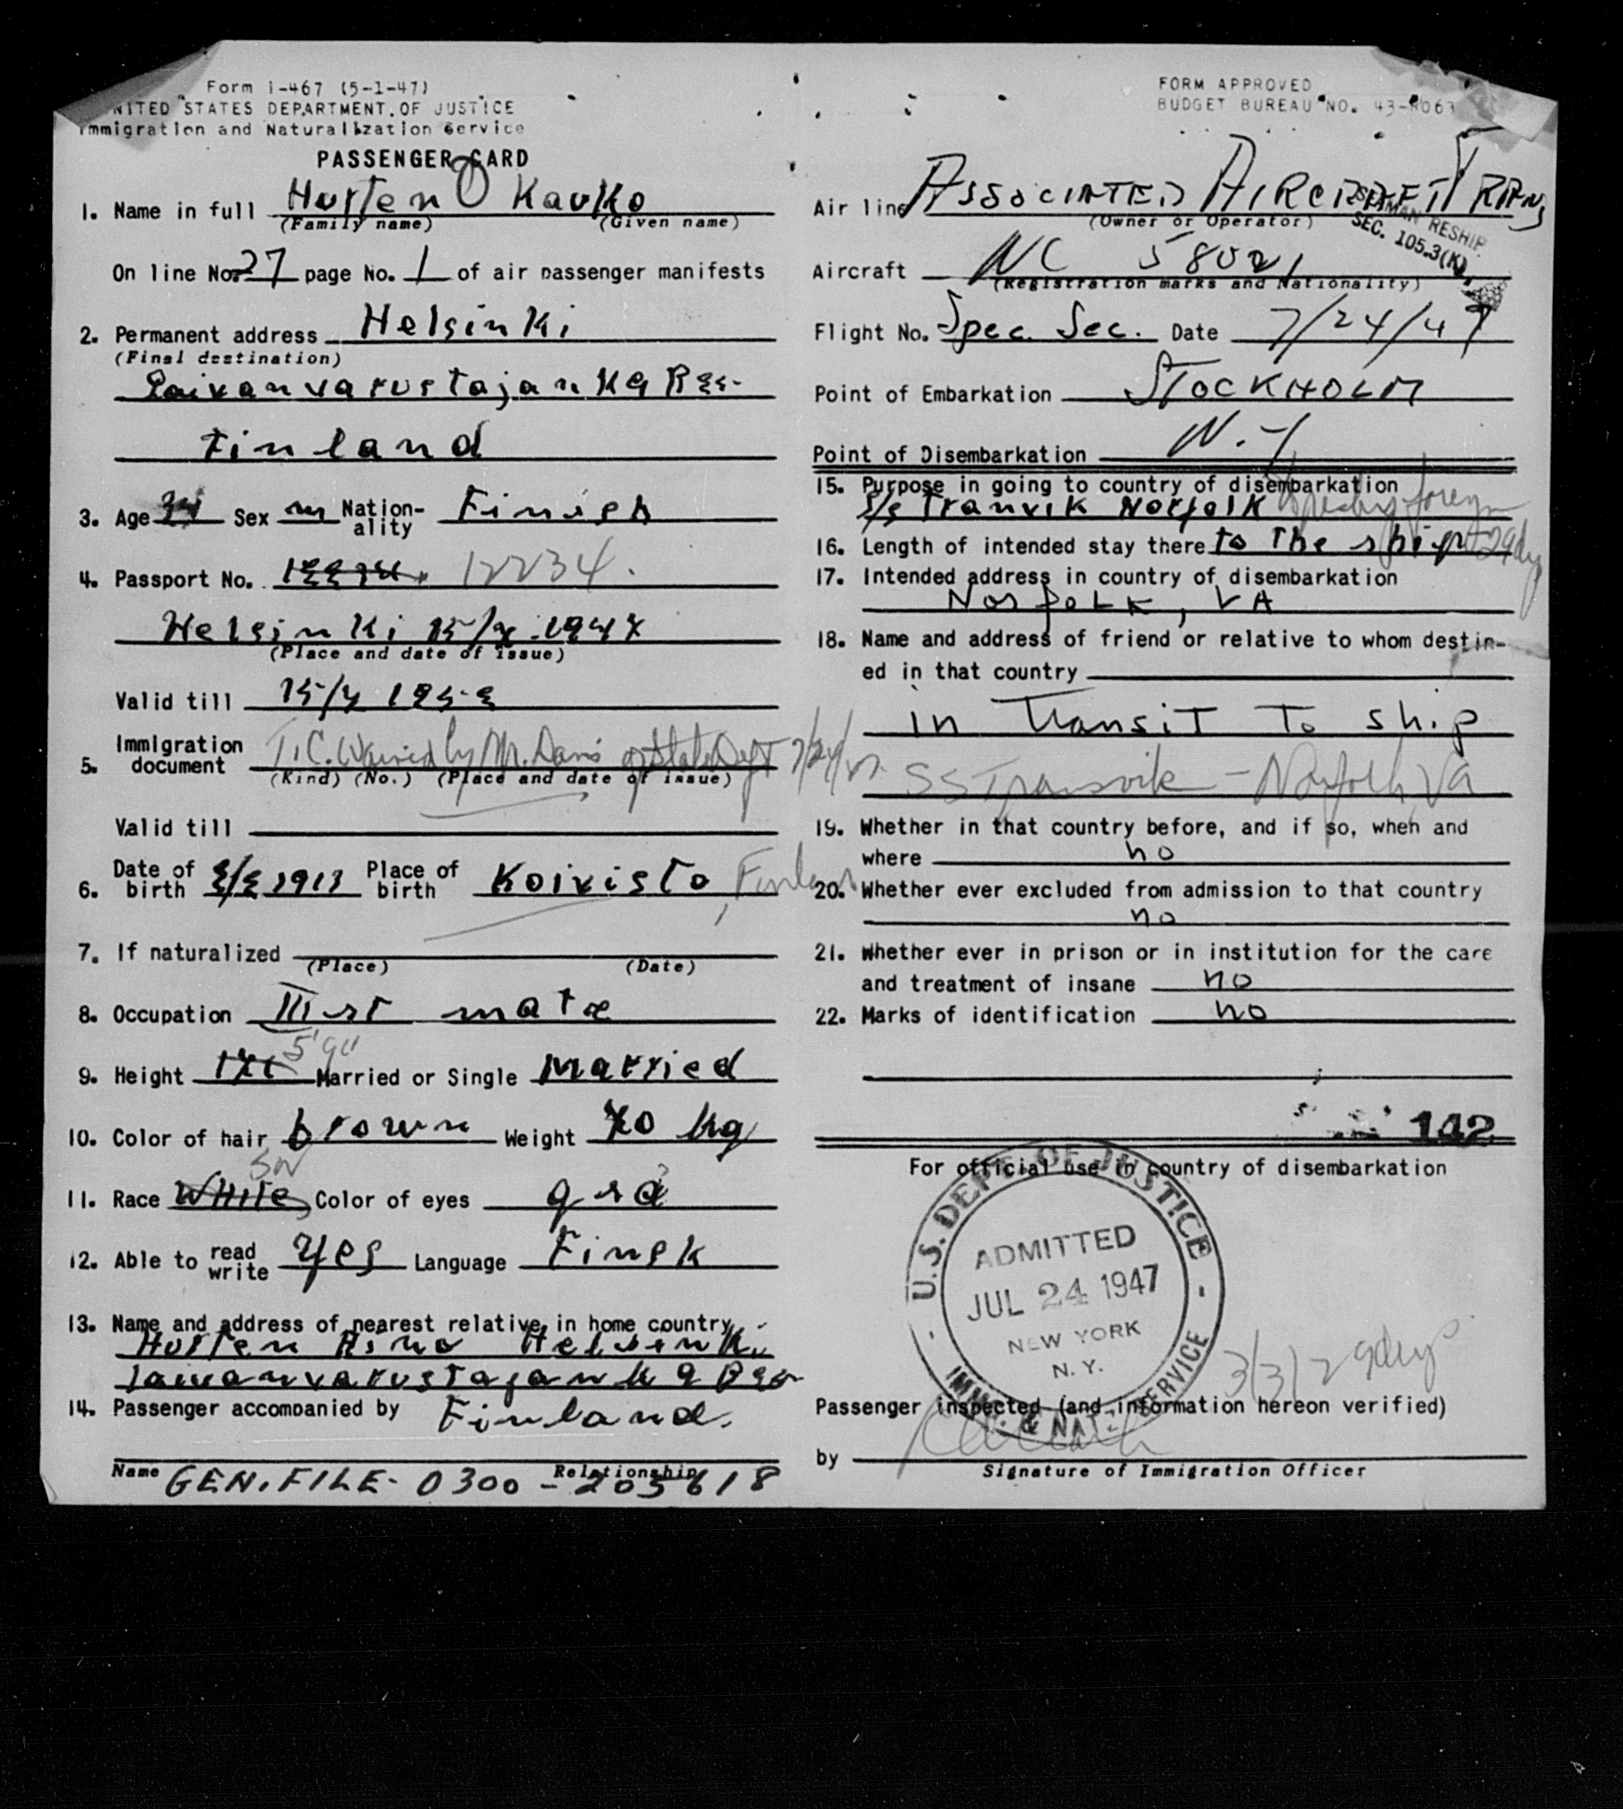 Form I-467 (5-1-47)
UNITED STATES DEPARTMENT OF JUSTICE
Immigration and Naturalization Service
PASSENGER CARD
1. Name in full Hurten O Kauko
(Family name) (Given name)
On line No. 27 page No. 1 of air passenger manifests
2. Permanent address Helsinki
(Final destination)
Finland
3. Age 34 Sex m Nationality Finish
4. Passport No. 12234.
Helsinki 15/7 1947
(Place and date of issue)
Valid till 15/7 1952
5. Immigration document T.C. Waived by Mr. Davis of State Dept 7/24/47
(Kind) (No.) (Place and date of issue)
Valid till
6. Date of birth 2/2 1913 Place of birth Koivisto, Finland
7. If naturalized
(Place) (Date)
8. Occupation III st mate
5'9"
9. Height 171 Married or Single Married
10. Color of hair brown Weight 70 kg
11. Race White Color of eyes grå
12. Able to read write yes Language Finsk
13. Name and address of nearest relative in home country
Hurten Aino Helsinki
14. Passenger accompanied by Finland.
Name Relationship
GEN. FILE - 0300 - 205618
FORM APPROVED
BUDGET BUREAU NO. 43-R063
Air line ASSOCIATED AIRCRAFT TRANS
(Owner or Operator)
SEAMAN RESHIP.
SEC. 105.3(K)
Aircraft NC 58021
(Registration marks and Nationality)
Flight No. Spec. Sec. Date 7/24/47
Point of Embarkation STOCKHOLM
Point of Disembarkation N.Y
15. Purpose in going to country of disembarkation
S/s Tranvik Norfolk foreign
16. Length of intended stay there to the ship 29dys
17. Intended address in country of disembarkation
Norfolk, VA
18. Name and address of friend or relative to whom destin-
ed in that country
in Transit To ship
SS Transvik - Norfolk, Va
19. Whether in that country before, and if so, when and
where no
20. Whether ever excluded from admission to that country
no
21. Whether ever in prison or in institution for the care
and treatment of insane no
22. Marks of identification no
142
For official use in country of disembarkation
U.S. DEPT. OF JUSTICE
ADMITTED
JUL 24 1947
NEW YORK
N. Y.
IMMI. & NAT. SERVICE
3/3/29dys
Passenger inspected (and information hereon verified)
by
Signature of Immigration Officer